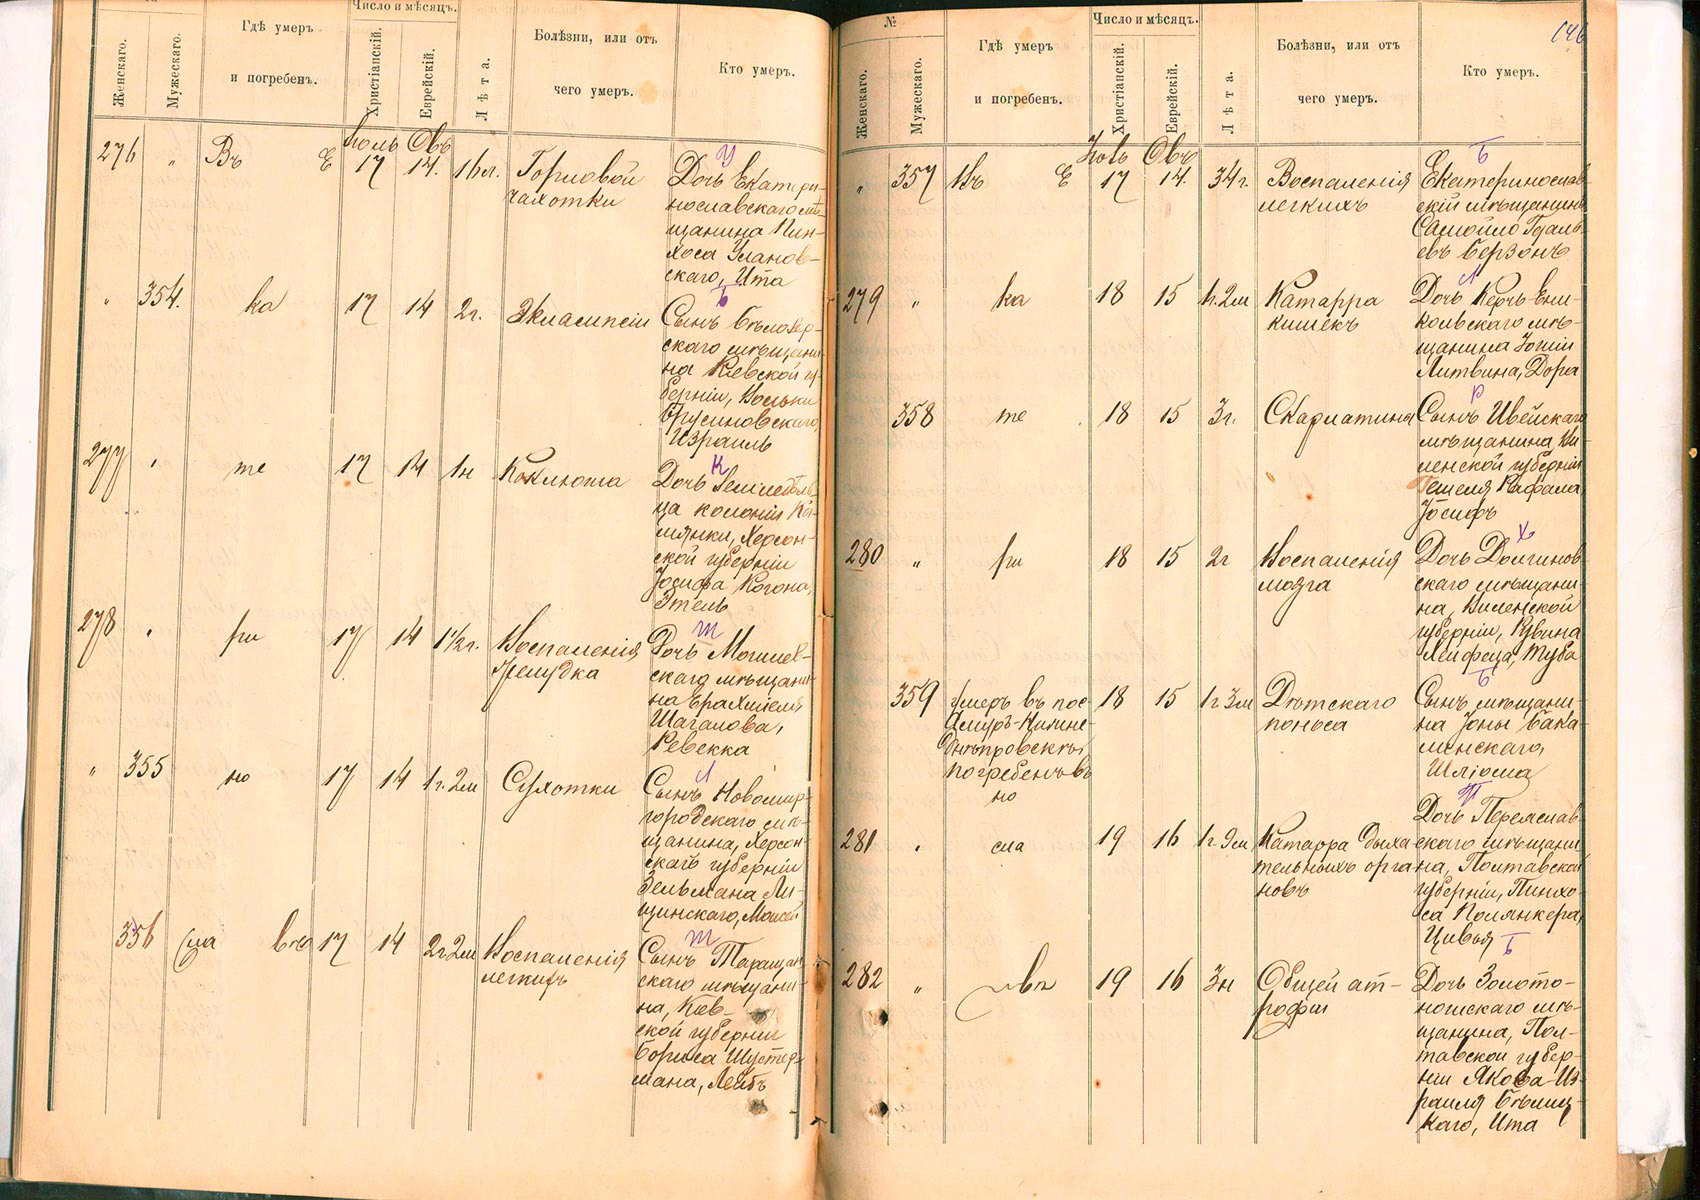 Женскаго.
Мужескаго.
Гдѣ умеръ
и погребенъ.
Число и мѣсяцъ.
Христіанскій.
Еврейскій.
Лѣта.
Болѣзни, или отъ
чего умеръ.
Кто умеръ.
276 „ Въ Е 17 14. 16 л.
Горловой
чахотки
У
Дочь Екатери-
нославскаго мѣ-
щанина Пин-
хоса Уланов-
скаго, Ита
„ 354. ка 17 14 2г.
Экламписіи
Б
Сынъ
скаго мѣщани-
на Кіевской гу-
берніи, Вольки
Брусиновскаго,
Израиль
277 те 17 14 1н
Коклюша
К
Дочь
ца колоніи Ка-
мянки, Херсон-
ской губерніи
Іосифа Когона,
Этель
278 ри 17 14 1½г.
Воспаленія
желудка
Ш
Дочь Могилев-
скаго мѣщани-
на Ерахмеля
Шагалова,
Ревекка
„ 355 но 17 14 1г. 2м
Сухотки
Л
Сынъ Новомир-
городскаго мѣ-
щанина, Херсон-
ской губерніи
Зельмана Ли-
щинскаго, Моисей
356 сла въ 17 14 2г 2м
Воспаленія
легкихъ
Ш
Сынъ Таращан-
скаго мѣщани-
на, Кіев-
ской губерніи
Бориса Шустер-
мана, Лейбъ
146
№
Женскаго.
Мужескаго.
Гдѣ умеръ
и погребенъ.
Число и мѣсяцъ.
Христіанскій.
Еврейскій.
Лѣта.
Болѣзни, или отъ
чего умеръ.
Кто умеръ.
„ 357 Въ Е 17 14. 34г.
Воспаленія
легкихъ
Б
Екатеринослав-
скій мѣщанинъ
Самойло Гдаль-
евъ Берзонъ
279 „ ка 18 15 1г. 2м
Катарра
кишекъ
Л
Дочь Керчь Ени-
кольскаго мѣ-
щанина
Литвина, Дора
358 те 18 15 3г.
Скарлатина
Р
Сынъ Ивейскаго
мѣщанина Ви-
ленской губерніи
Гешеля Рафала,
Іосифъ
280 „ ри 18 15 2г
Воспаленія
мозга
Х
Дочь Долгинов-
скаго мѣщани-
на, Виленской
губерніи, Рувина
Хейфеца, Туба
359 18 15 1г 3м
Умеръ въ пос.
Амуръ-Нижне-
Днѣпровскѣ,
погребенъ въ
но
Дѣтскаго
поноса
Б
Сынъ мѣщани-
на Іоны Бака-
линскаго,
Шліома
281 сла 19 16 1г 9м
Катарра дыха-
тельныхъ орга-
новъ
П
Дочь Переяслав-
скаго мѣщани-
на, Полтавской
губерніи, Пинхо-
са Полянкера,
Цивья
282 „ въ 19 16 3н
Общей ат-
рофіи
Б
Дочь Золото-
ношскаго мѣ-
щанина, Пол-
тавской губер-
ніи Якова-Из-
раиля Бѣлиц-
каго, Ита